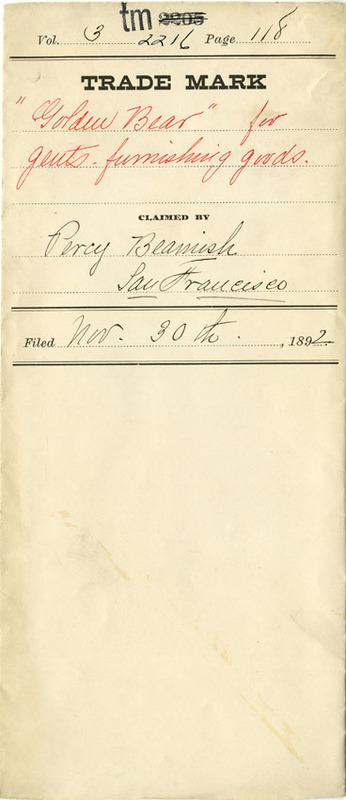 tm 2205
Vol. 3 2216 Page 118
TRADE MARK
"Golden Bear" for
gents. furnishing goods.
CLAIMED BY
Percy Beamish
San Francisco
Filed Nov. 30th. , 1892.